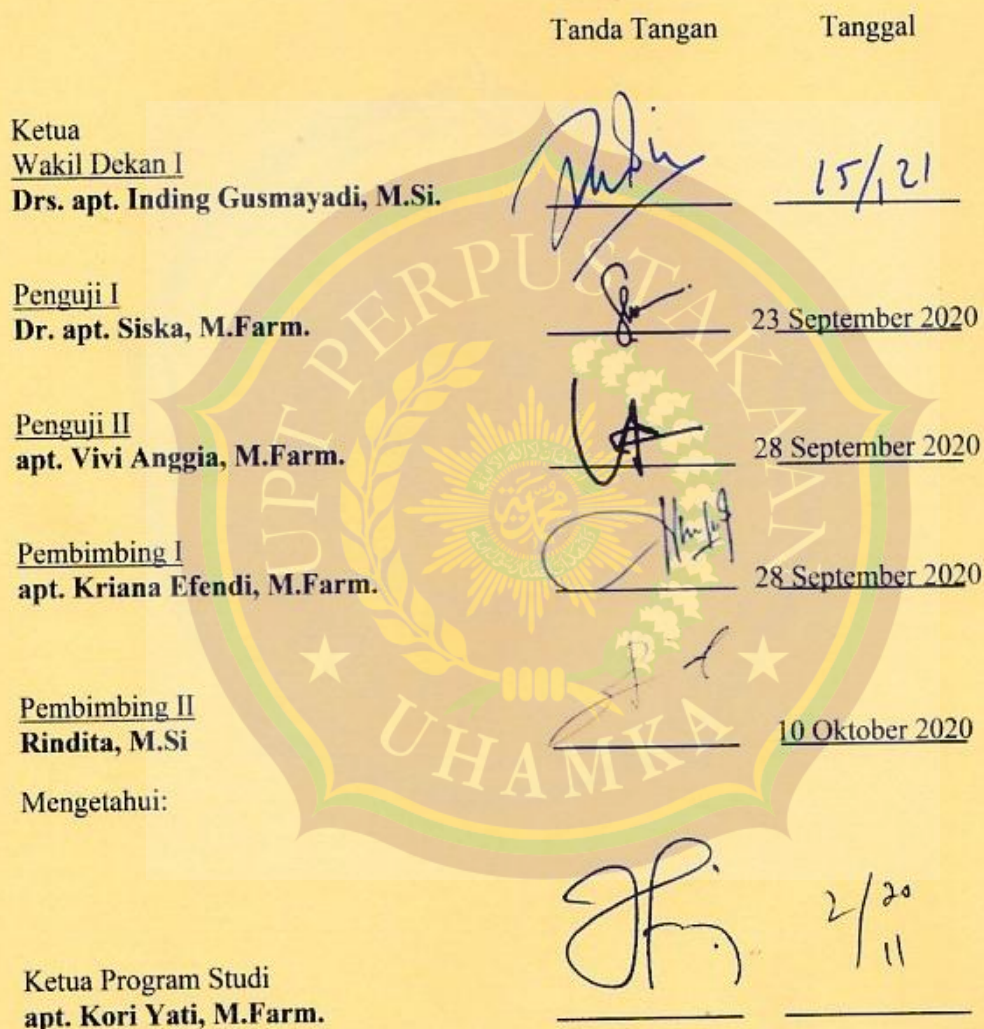 Tanda Tangan Tanggal
Ketua
Wakil Dekan I
Drs. apt. Inding Gusmayadi, M.Si.
15/1 21
Penguji I
Dr. apt. Siska, M.Farm.
23 September 2020
Penguji II
apt. Vivi Anggia, M.Farm.
28 September 2020
Pembimbing I
apt. Kriana Efendi, M.Farm.
28 September 2020
Pembimbing II
Rindita, M.Si
10 Oktober 2020
Mengetahui:
2/11 20
Ketua Program Studi
apt. Kori Yati, M.Farm.
UPT PERPUSTAKAAN
UHAMKA